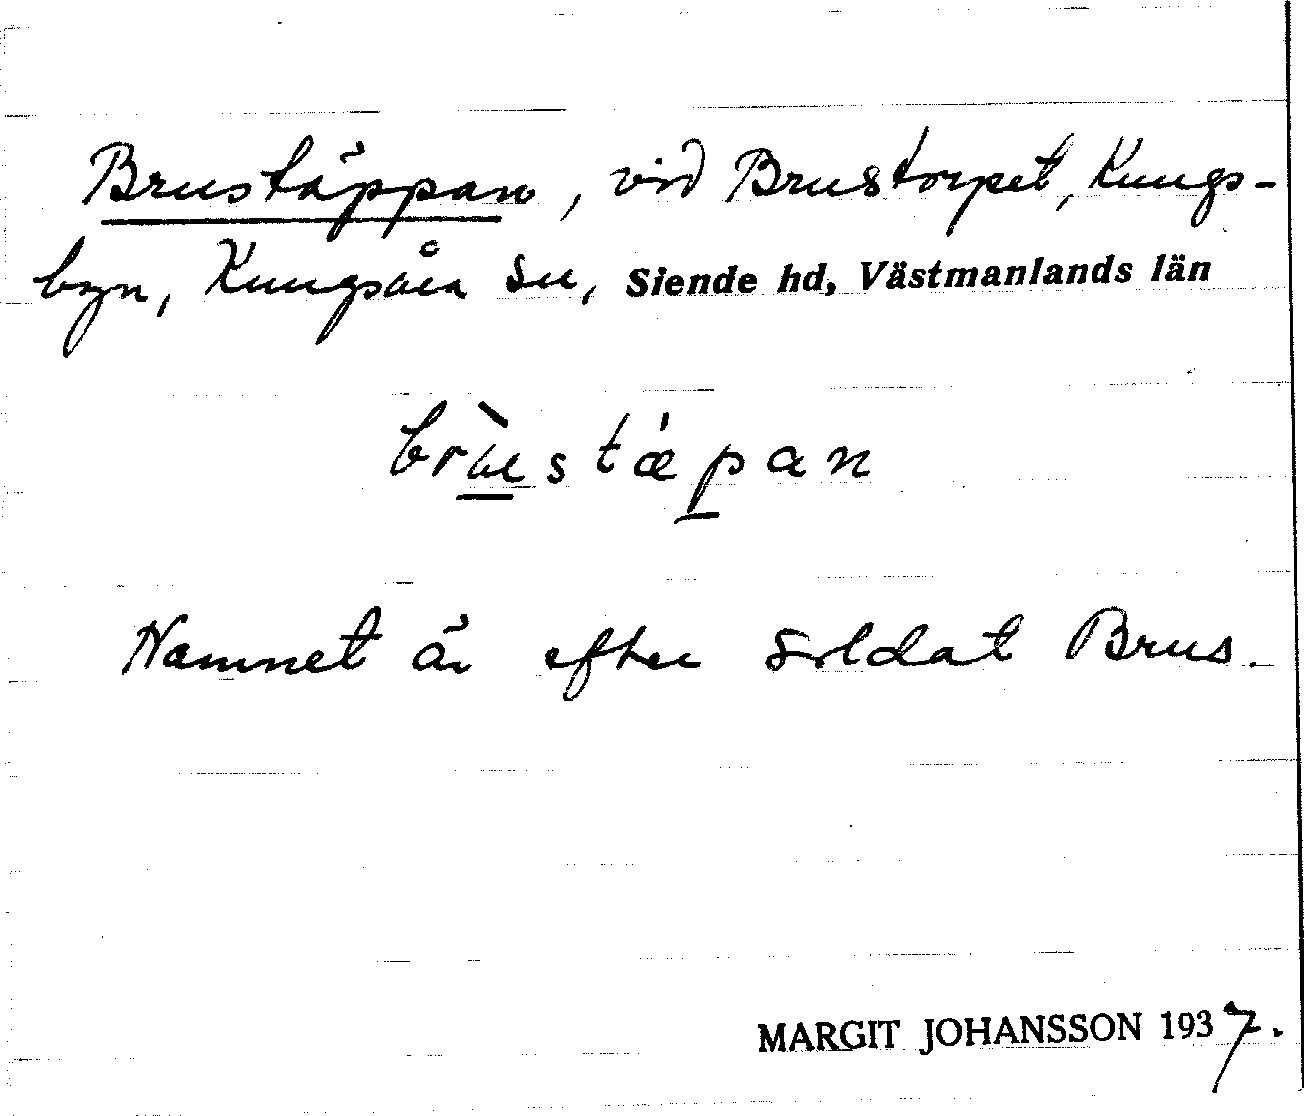 Brustäppan, vid Brustorpet, Kungs-
byn, Kungsåra sn, Siende hd, Västmanlands län
brùstǽpan
Namnet är efter soldat Brus.
MARGIT JOHANSSON 1937.